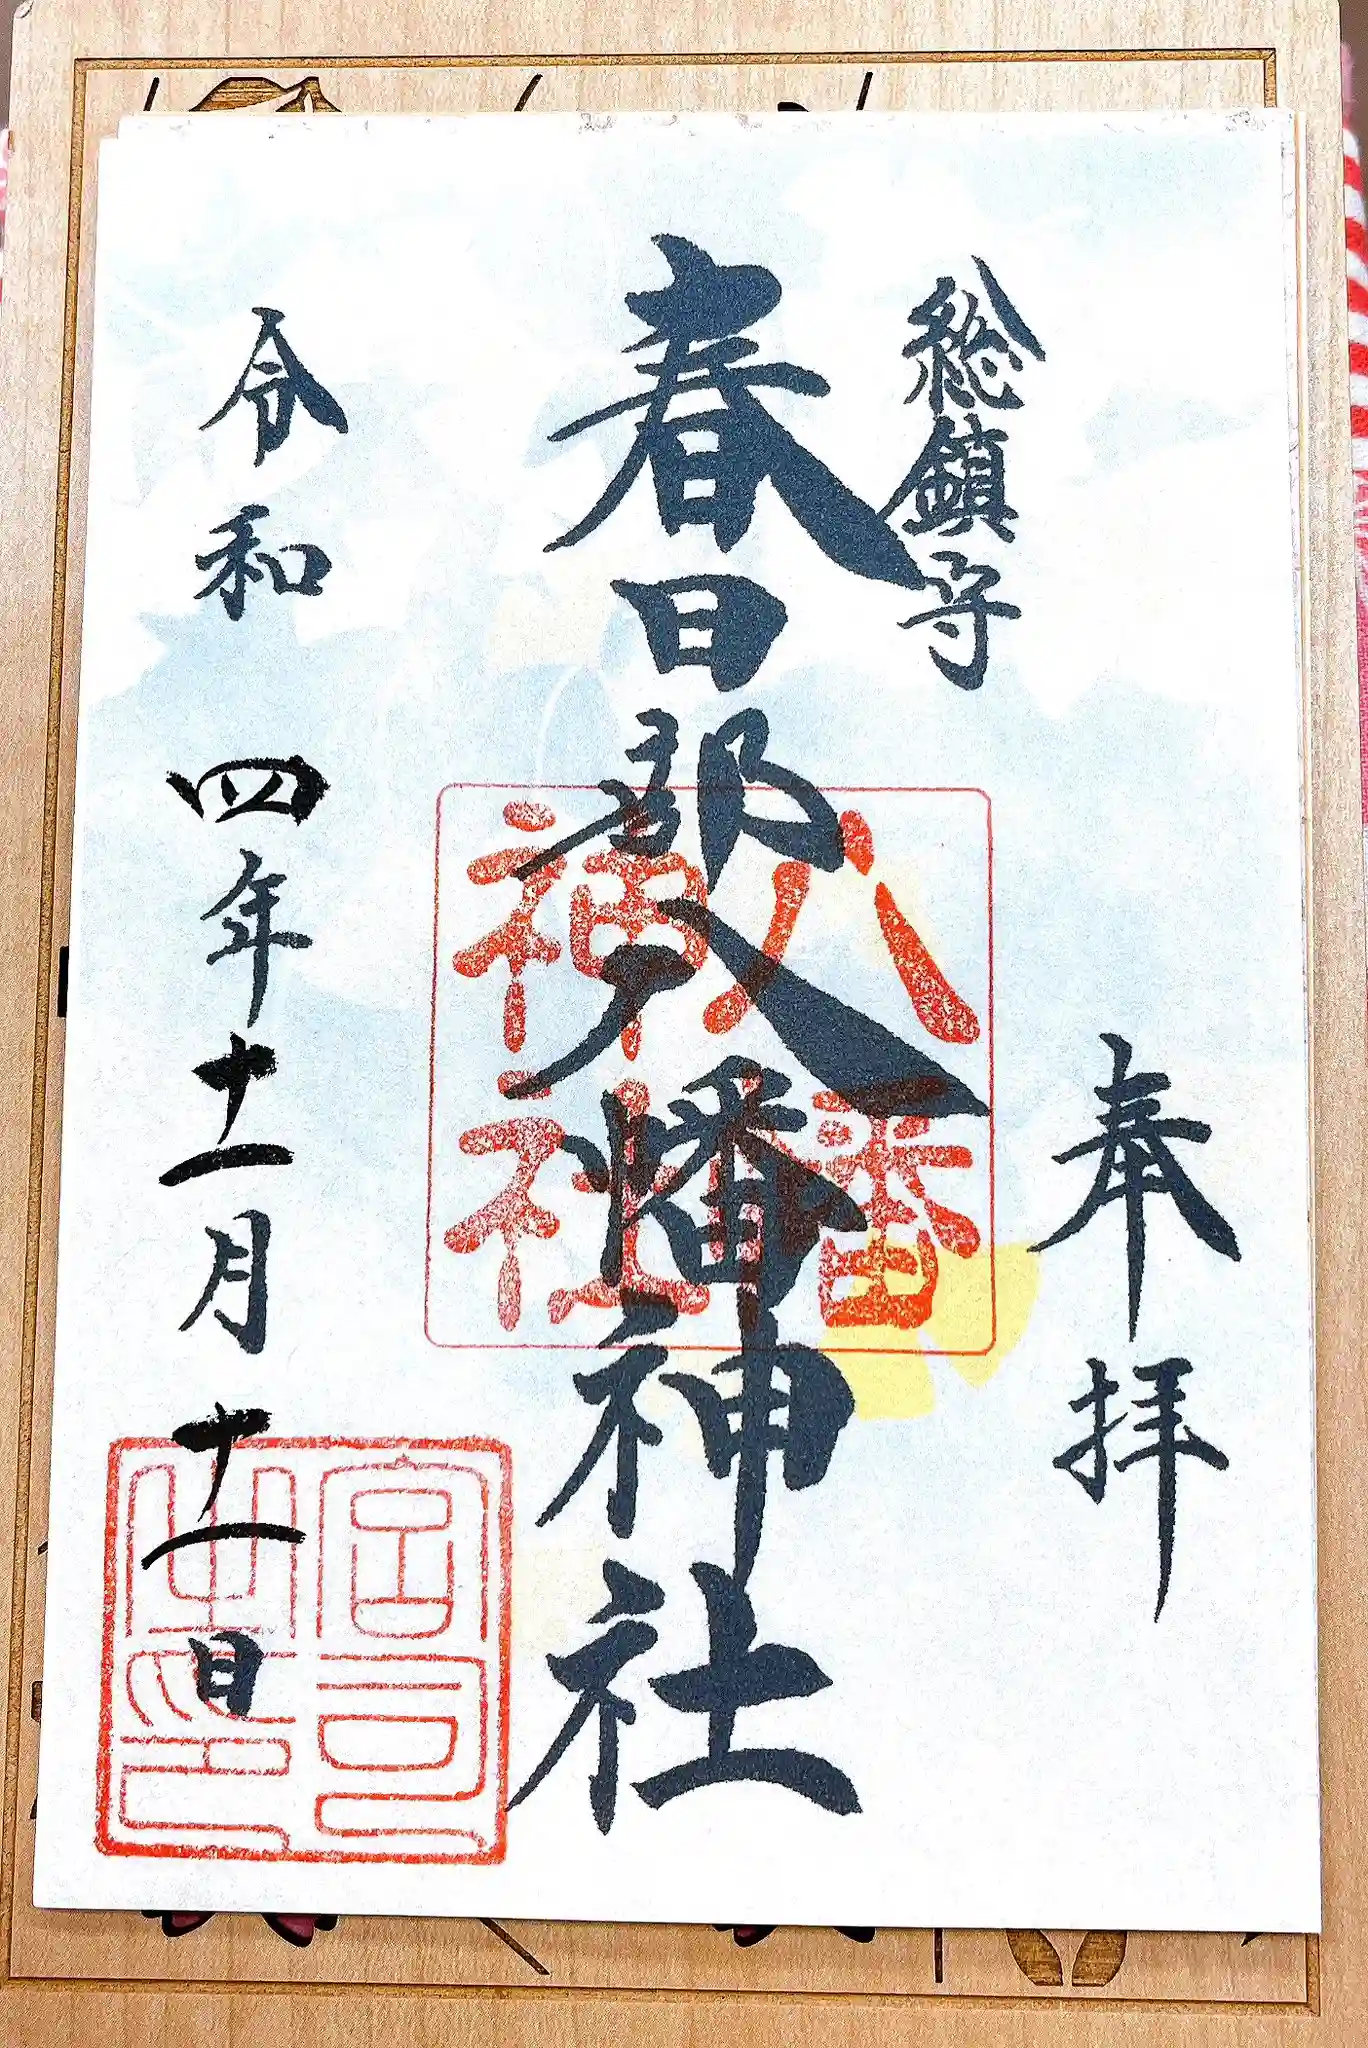 総鎮守
奉拝
春日部八幡神社
八幡
神社
宮司
之印
令和四年十一月十一日